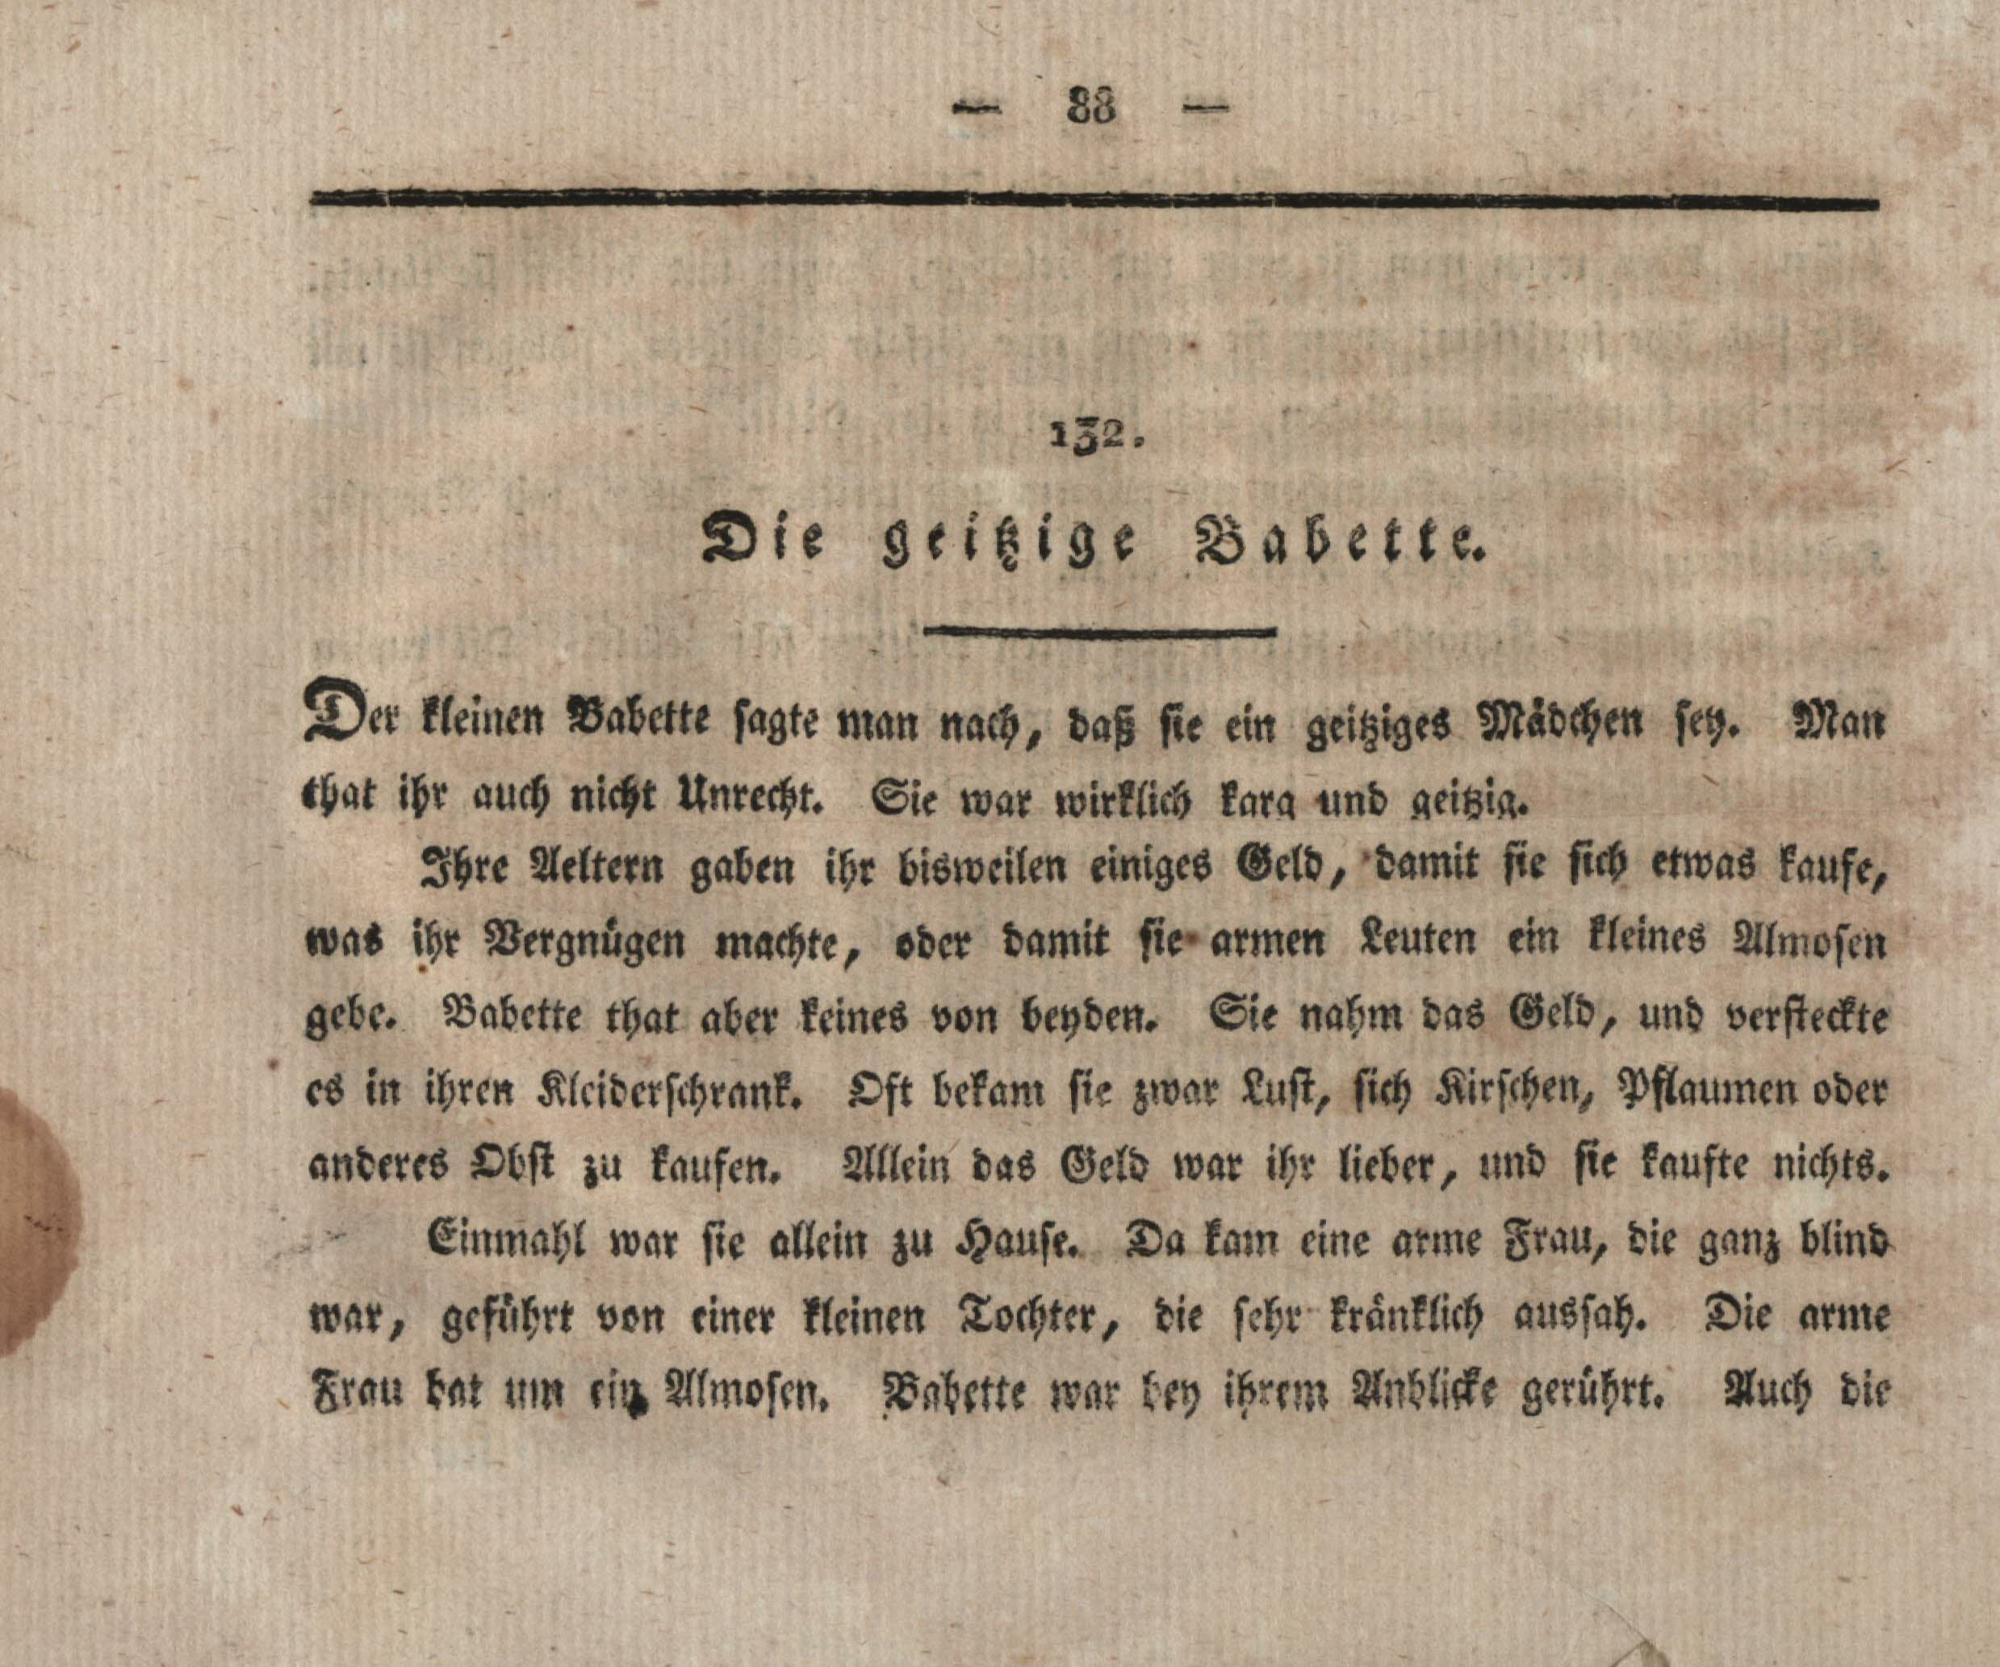 — 88 —
132.
Die geitzige Babette.
Der kleinen Babette sagte man nach, daß sie ein geitziges Mädchen sey. Man
that ihr auch nicht Unrecht. Sie war wirklich karg und geitzig.
Ihre Aeltern gaben ihr bisweilen einiges Geld, damit sie sich etwas kaufe,
was ihr Vergnügen machte, oder damit sie armen Leuten ein kleines Almosen
gebe. Babette that aber keines von beyden. Sie nahm das Geld, und versteckte
es in ihren Kleiderschrank. Oft bekam sie zwar Lust, sich Kirschen, Pflaumen oder
anderes Obst zu kaufen. Allein das Geld war ihr lieber, und sie kaufte nichts.
Einmahl war sie allein zu Hause. Da kam eine arme Frau, die ganz blind
war, geführt von einer kleinen Tochter, die sehr kränklich aussah. Die arme
Frau bat um ein Almosen. Babette war bey ihrem Anblicke gerührt. Auch die